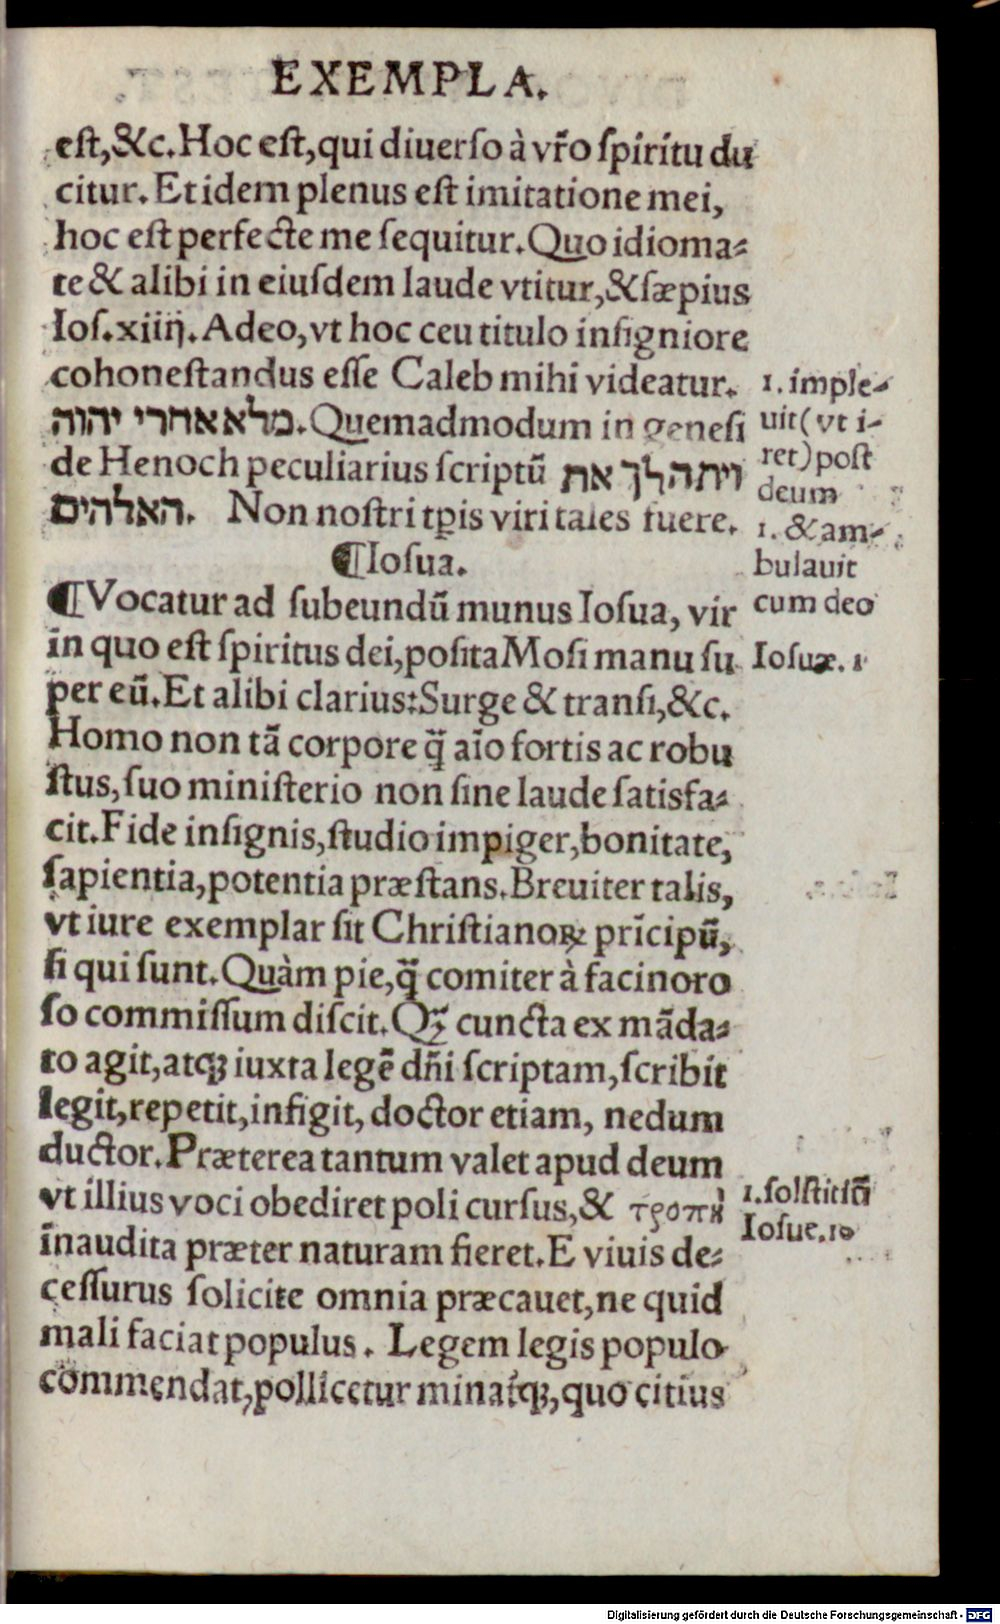 EXEMPLA.
eſt,&c.Hoc eſt,qui diuerſo à vr̃o ſpiritu du
citur.Et idem plenus eſt imitatione mei,
hoc eſt perfecte me ſequitur.Quo idioma⸗
te & alibi in eiuſdem laude vtitur,&ſæpius
Ioſ.xiiij.Adeo,vt hoc ceu titulo inſigniore
cohoneſtandus eſſe Caleb mihi videatur.
מלא אחרי יהוה.Quemadmodum in geneſi
de Henoch peculiarius ſcriptũ ויתהלך את
האלהים. Non noſtri tp̃is viri tales fuere.
1. imple⸗
uit(vt i⸗
ret)poſt
deum
1. &am⸗
bulauit
cum deo
¶Ioſua.
¶Vocatur ad ſubeundũ munus Ioſua, vir
in quo eſt ſpiritus dei,poſita Moſi manu ſu
per eũ.Et alibi clarius:Surge & tranſi,&c.
Ioſuæ. 1
Homo non tã corpore q̃ aĩo fortis ac robu
ſtus,ſuo miniſterio non ſine laude ſatisfa⸗
cit.Fide inſignis,ſtudio impiger,bonitate,
ſapientia,potentia præſtans.Breuiter talis,
vt iure exemplar ſit Chriſtianoꝝ prĩcipũ,
ſi qui ſunt.Quàm pie,q̃ comiter à facinoro
ſo commiſſum diſcit.Qꝫ cuncta ex mãda⸗
to agit,atqꝫ iuxta legẽ dñi ſcriptam,ſcribit
legit,repetit,infigit, doctor etiam, nedum
ductor.Præterea tantum valet apud deum
vt illius voci obediret poli curſus,& τροπὴ
inaudita præter naturam fieret.E viuis de⸗
1.ſolſtitiũ
Ioſue.10
ceſſurus ſolicite omnia præcauet,ne quid
mali faciat populus. Legem legis populo
commendat,pollicetur minatqꝫ,quo citius
Digitalisierung gefördert durch die Deutsche Forschungsgemeinschaft - DFG